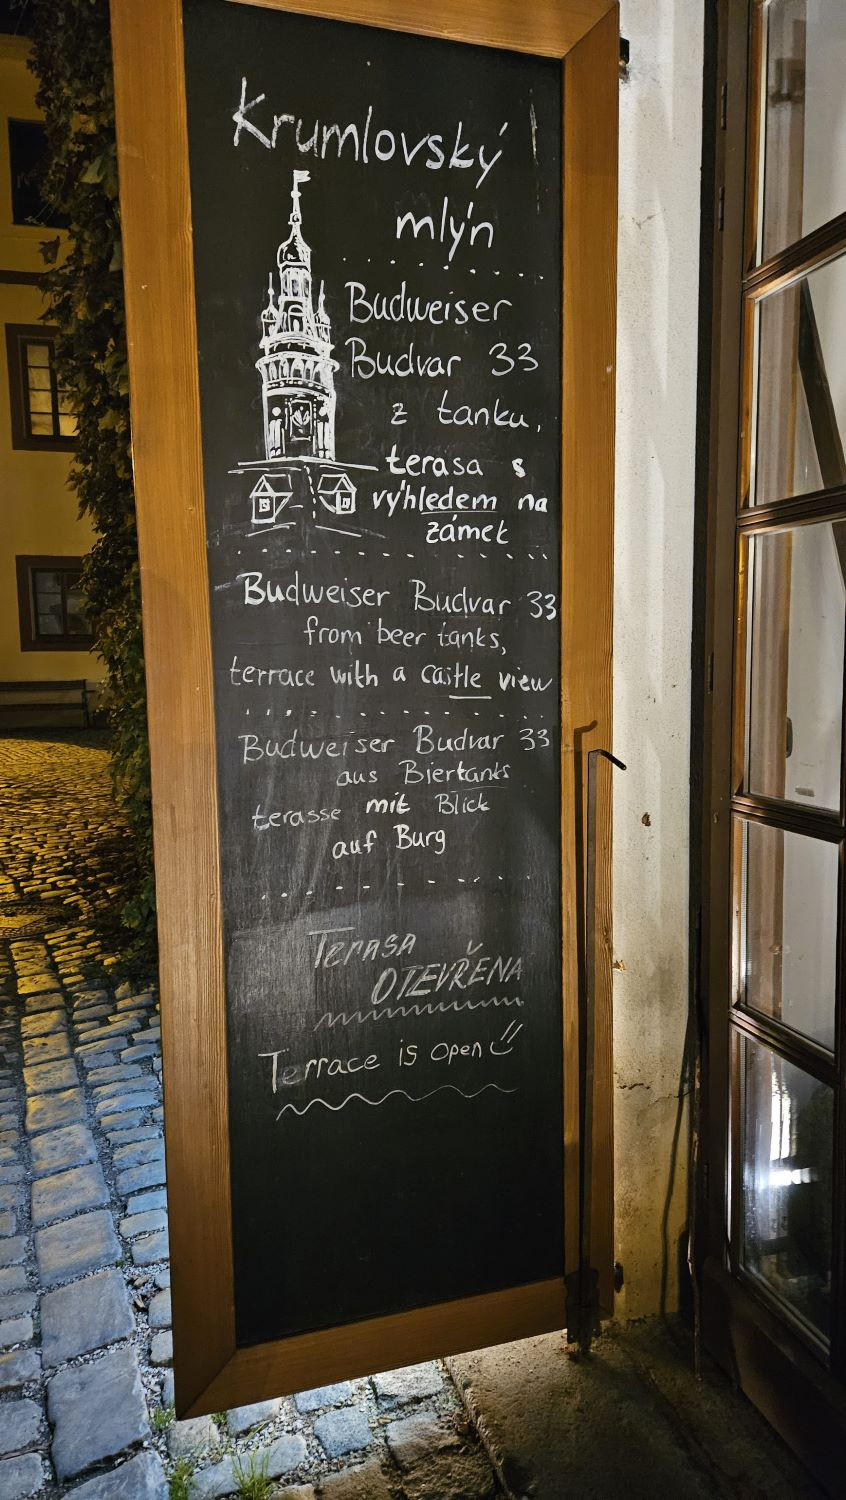 Krumlovský
mlýn
Budweiser
Budvar 33
z tanku,
terasa s
výhledem na
zámek
Budweiser Budvar 33
from beer tanks,
terrace with a castle view
Budweiser Budvar 33
aus Biertanks
terasse mit Blick
auf Burg
TERASA
OTEVŘENA
Terrace is open